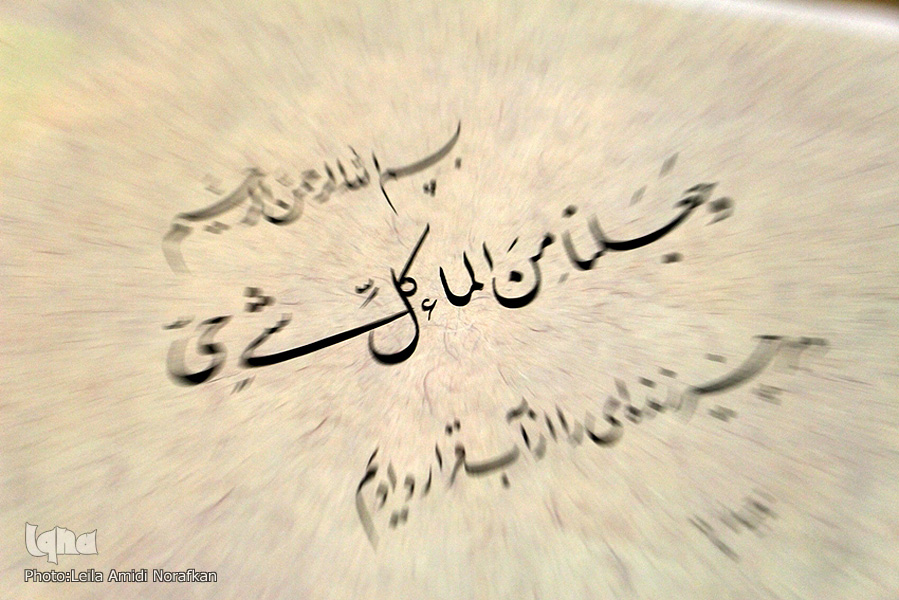 بسم الله الرحمن الرحیم
وَجَعَلنا مِنَ الماءِ کُلَّ شیءٍ حیّ
هر چیز زنده‌ای را از آب قرار دادیم
Iqna
Photo:Leila Amidi Norafkan